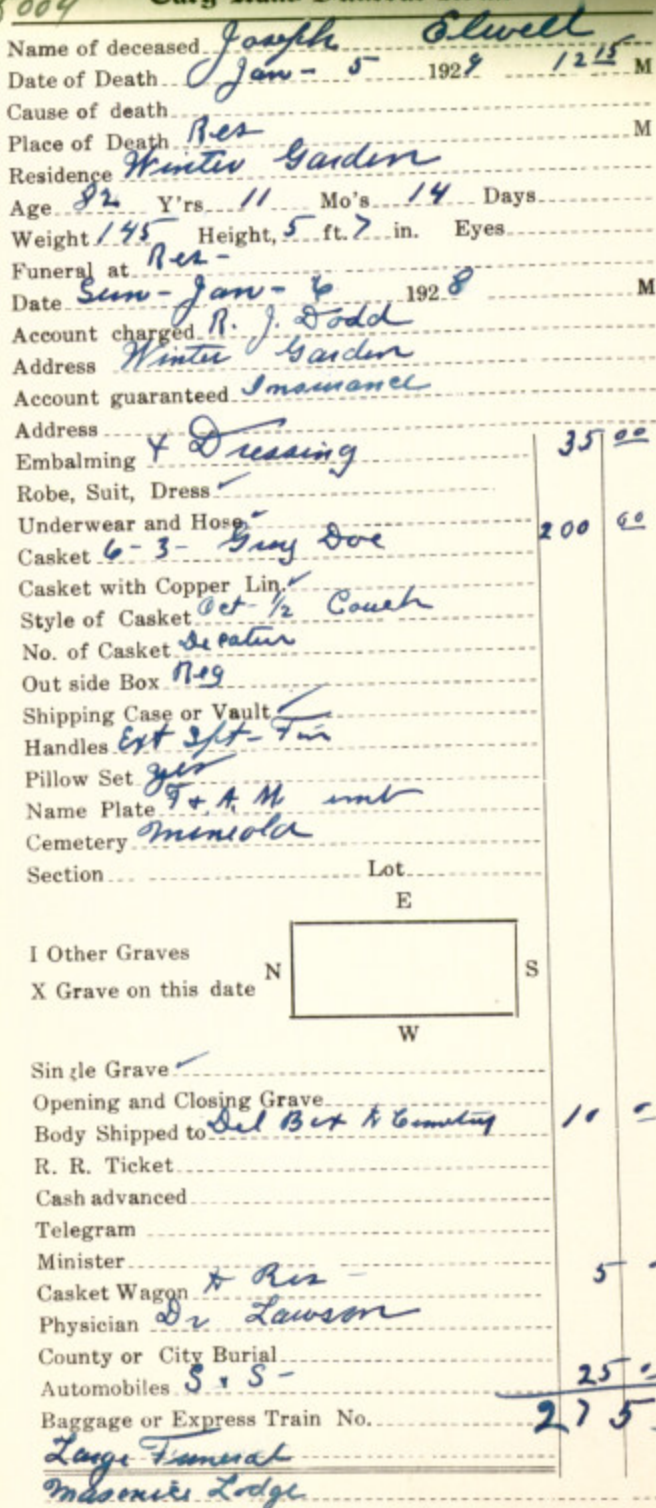 Name of deceased Joseph Elwell
Date of Death Jan - 5 1929 12 15 M
Cause of death
Place of Death Res M
Residence Winter Garden
Age 82 Y'rs 11 Mo's 14 Days
Weight 145 Height, 5 ft. 7 in. Eyes
Funeral at Res -
Date Sun - Jan - 6 1928 M
Account charged R. J. Dodd
Address Winter Garden
Account guaranteed Insurance
Address
Embalming & Dressing 35 00
Robe, Suit, Dress ✓
Underwear and Hose ✓
Casket 6-3- Gray Doe 200 00
Casket with Copper Lin. ✓
Style of Casket Oct - 1/2 Couch
No. of Casket Decatur
Out side Box Reg
Shipping Case or Vault ✓
Handles Ext
Pillow Set yes
Name Plate F & A. M emb
Cemetery
Section Lot
E
I Other Graves
N S
X Grave on this date
W
Single Grave ✓
Opening and Closing Grave
Body Shipped to Del Box to Cemetery 10
R. R. Ticket
Cash advanced
Telegram
Minister
Casket Wagon to Res - 5
Physician Dr Lawson
County or City Burial
Automobiles S & S - 25
Baggage or Express Train No. 275
Large Funeral
Masonic Lodge